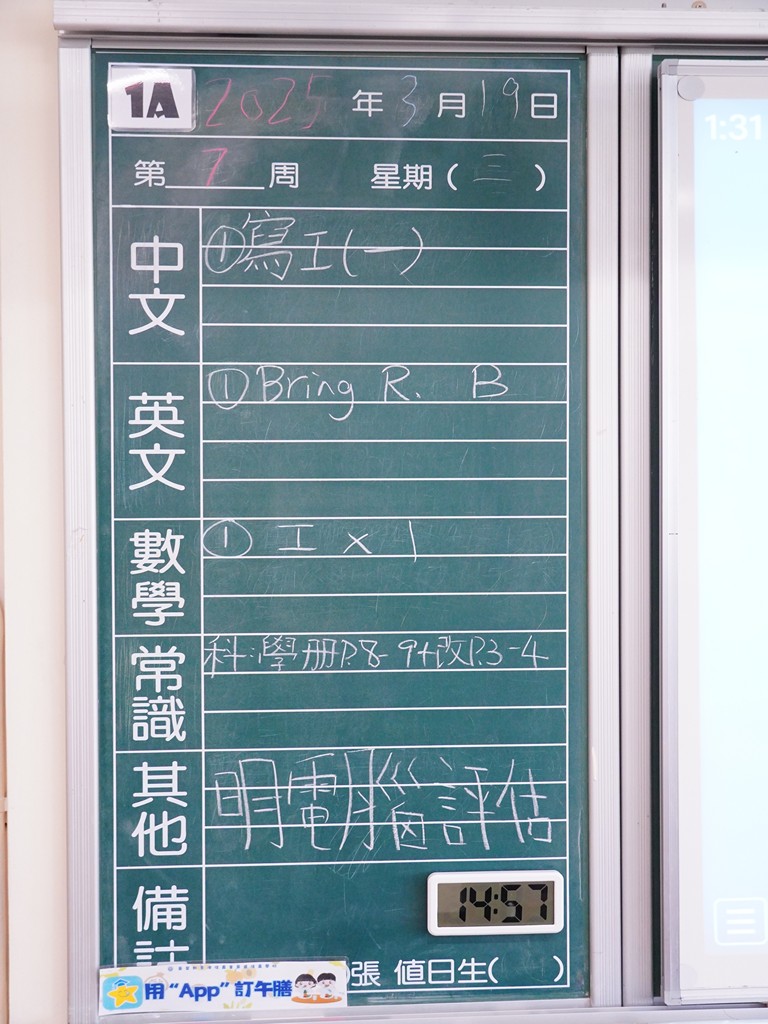 1A 2025 年 3 月 19 日
第 7 周 星期(三)
中文
①寫工(一)
英文
① Bring R. B
數學
① 工 x 1
常識
科:學冊P.8-9+改P.3-4
其他
明電腦評估
備註
14:57
張 值日生( )
用“App”訂午膳
1:31